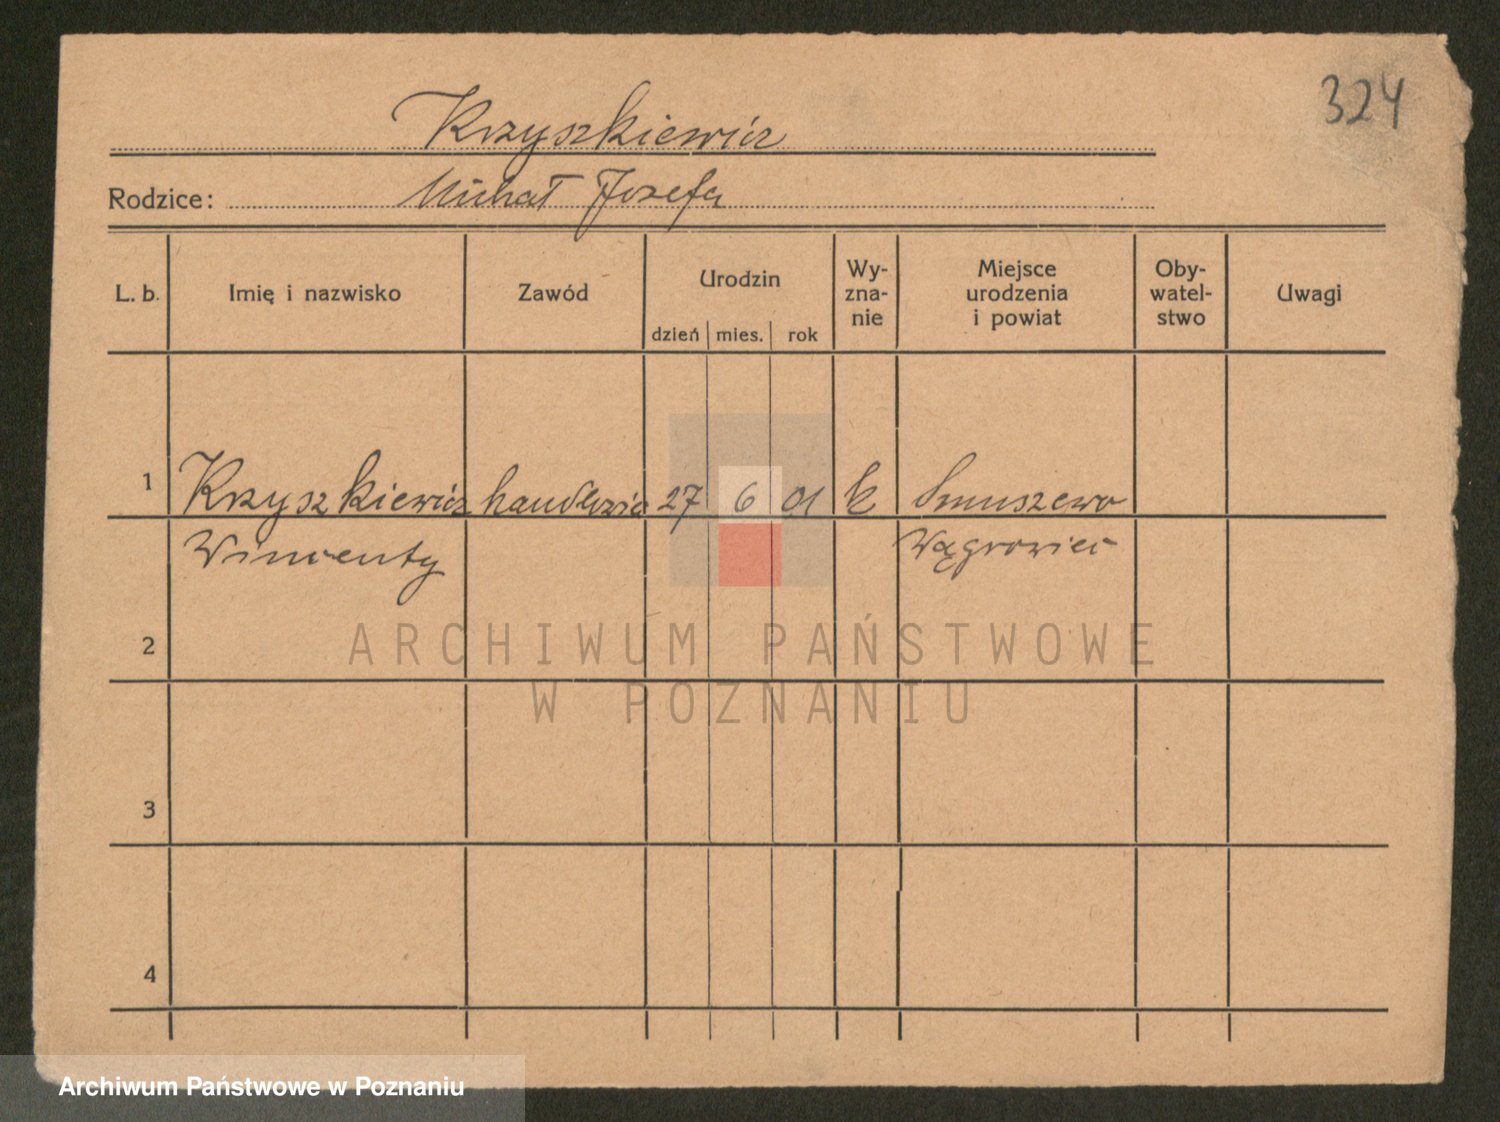 324
Krzyszkiewicz
Rodzice: Michał Józefa
L. b. Imię i nazwisko Zawód Urodzin dzień mies. rok Wy-zna-nie Miejsce urodzenia i powiat Oby-watel-stwo Uwagi
1 Krzyszkiewicz 27 6 01 k Smuszewo
Wincenty Wągrowiec
2
ARCHIWUM PAŃSTWOWE
W POZNANIU
3
4
Archiwum Państwowe w Poznaniu